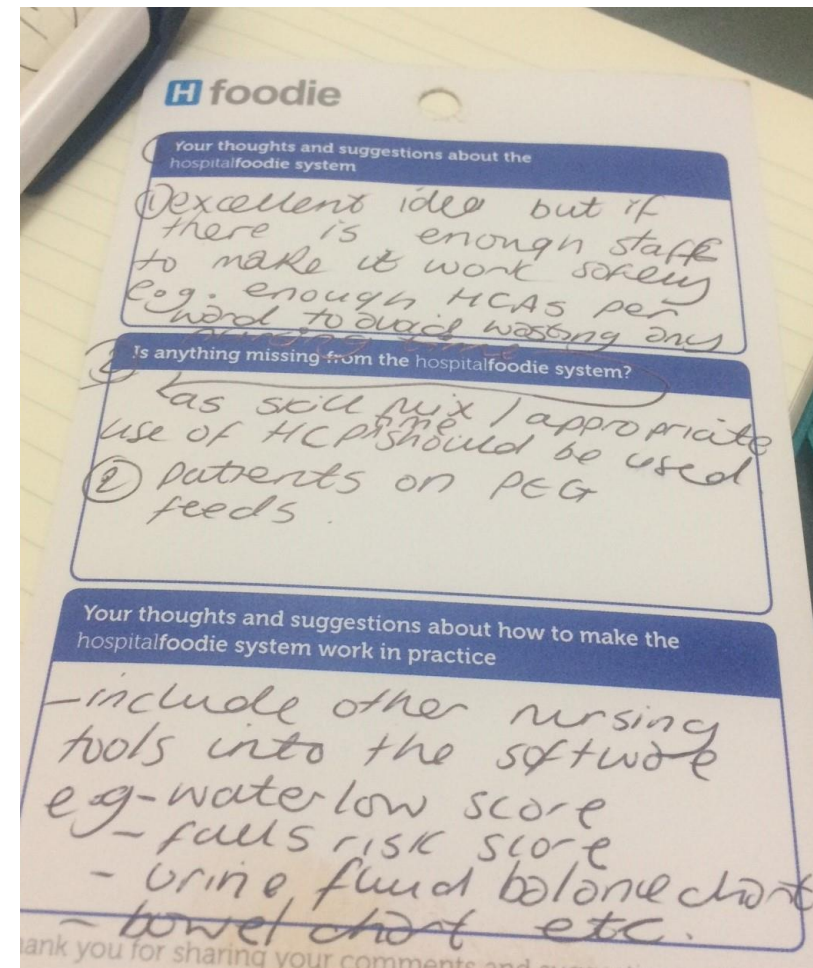 H foodie
Your thoughts and suggestions about the
hospitalfoodie system
① excellent idea but if
there is enough staff
to make it work safely
e.g. enough HCAs per
ward to avoid wasting any
nursing time
Is anything missing from the hospitalfoodie system?
as skill mix / appropriate
time
use of HCP should be used
② patients on PEG
feeds.
Your thoughts and suggestions about how to make the
hospitalfoodie system work in practice
- include other nursing
tools into the software
e.g - waterlow score
- falls risk score
- urine fluid balance chart
- bowel chart etc.
ank you for sharing your comments and